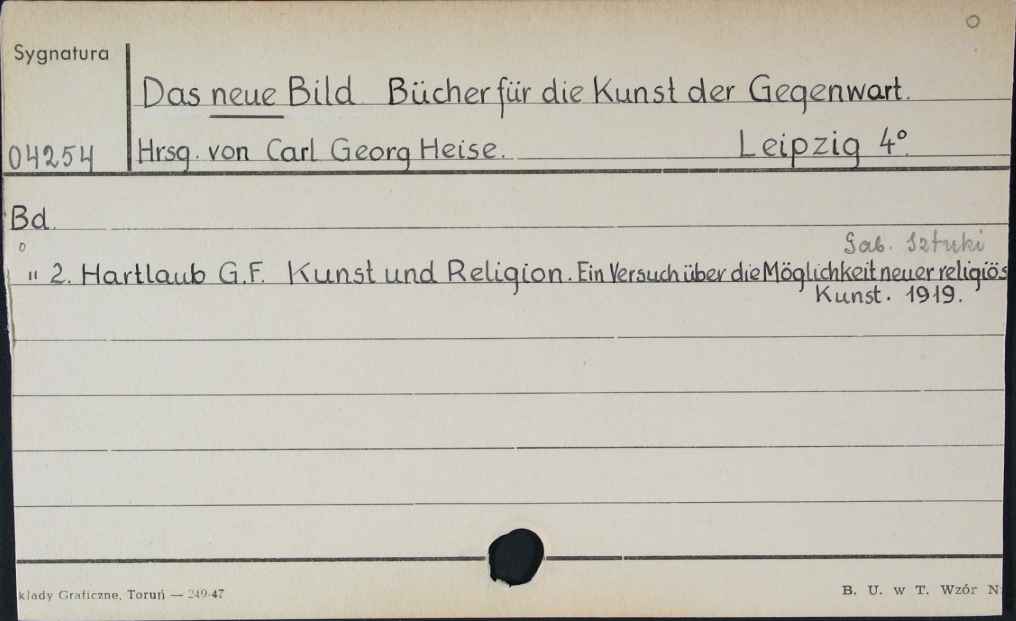 Sygnatura
Das neue Bild Bücher für die Kunst der Gegenwart.
04254 Hrsg. von Carl Georg Heise. Leipzig 4°
Bd.
Gab. Sztuki
" 2. Hartlaub G.F. Kunst und Religion. Ein Versuch über die Möglichkeit neuer religiös
Kunst. 1919.
kłady Graficzne, Toruń — 249-47
B. U. w T. Wzór N